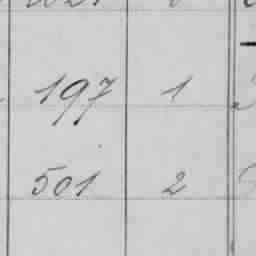 197 1
501 2